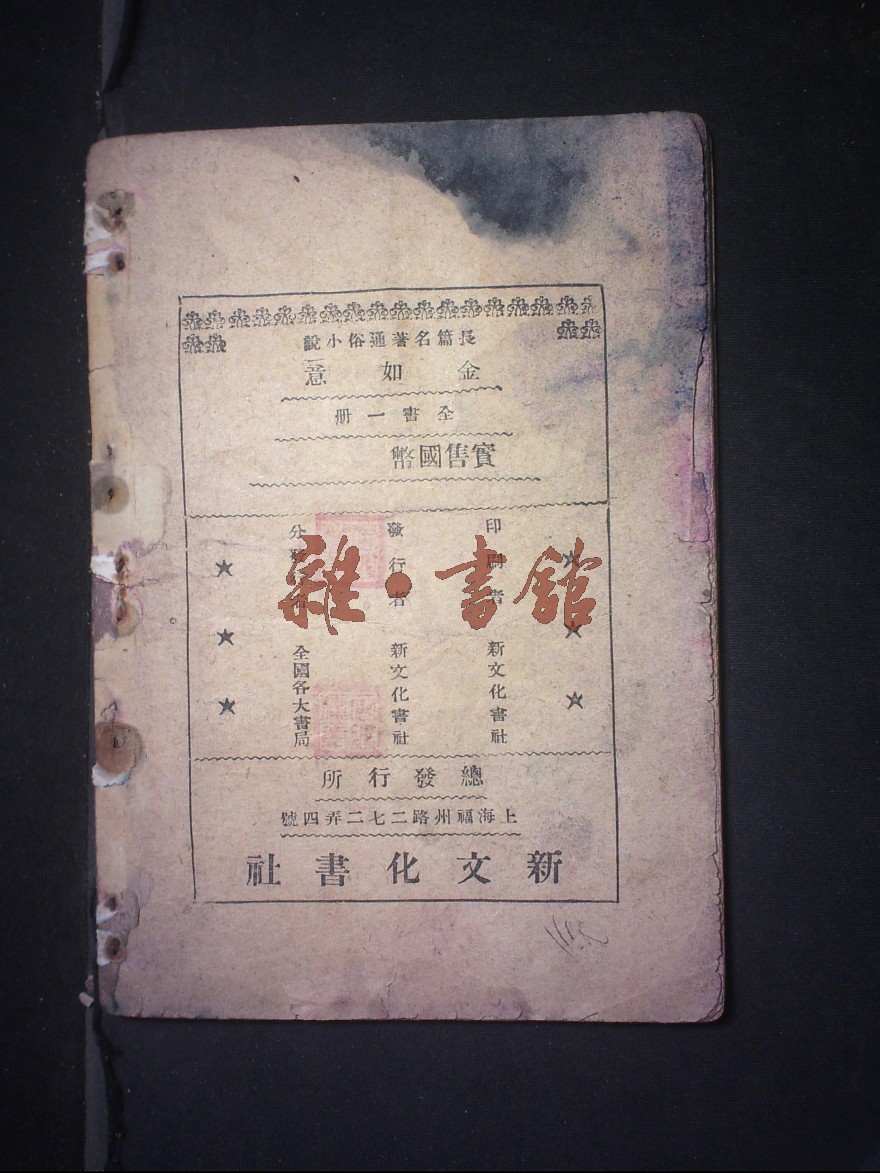 長篇名著通俗小說
金如意
全書一册
實售國幣
印刷者 新文化書社
發行者 新文化書社
分發行者 全國各大書局
總發行所
上海福州路二七二弄四號
新文化書社
雜·書館